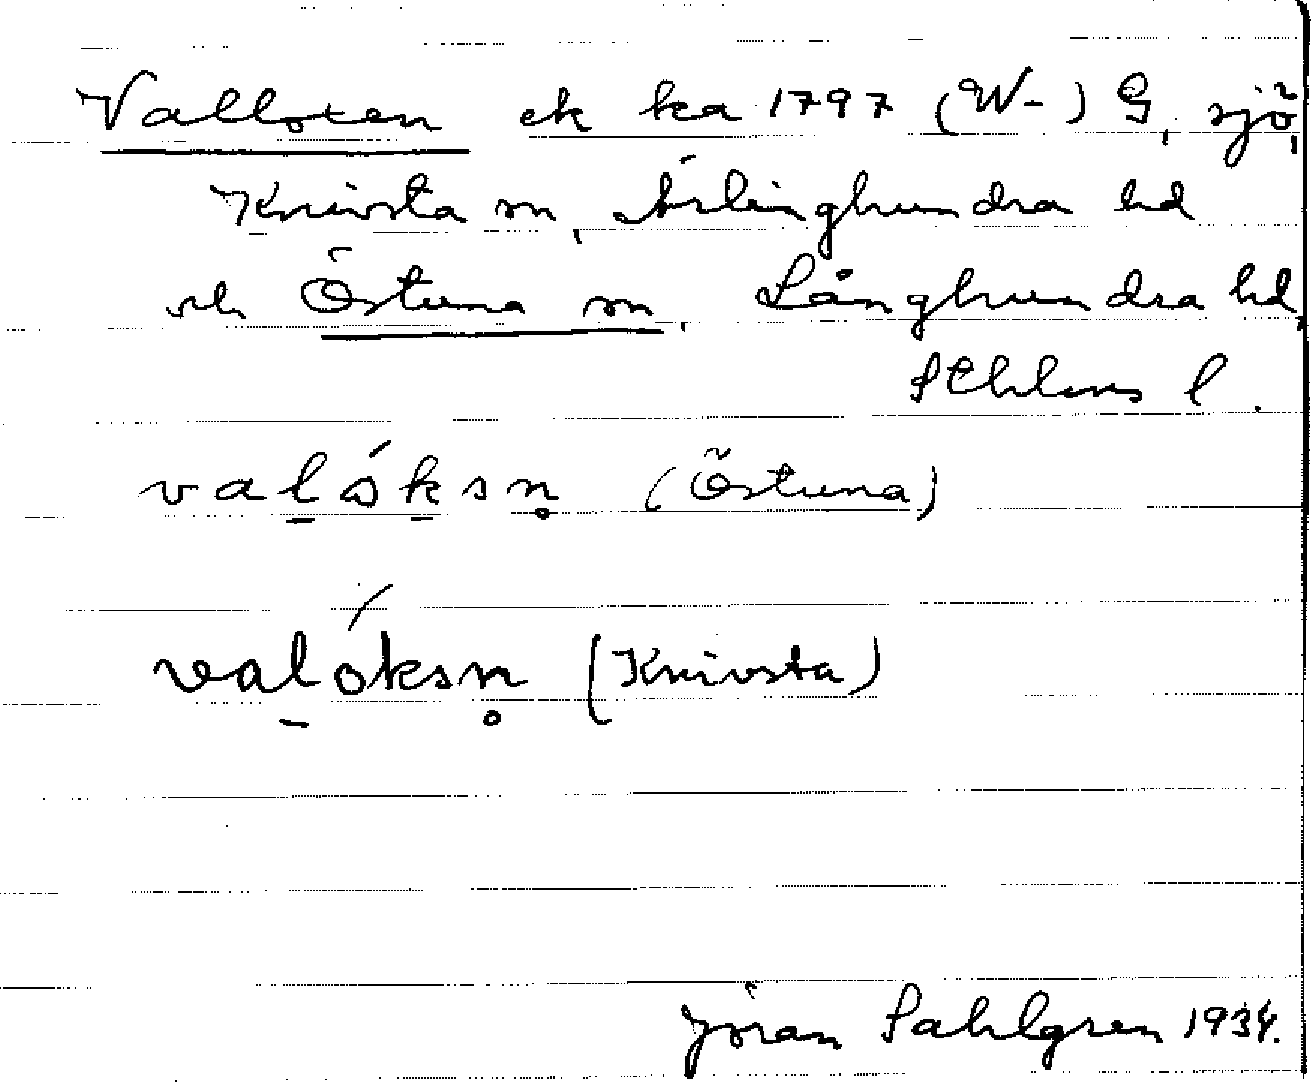 Valloxen ek ka 1797 (W-) G, sjö,
Knivsta sn, Ärlinghundra hd
och Östuna sn, Långhundra hd,
Sthlms l.
valóksn̥ (Östuna)
valóksn̥ (Knivsta)
Jöran Sahlgren 1934.